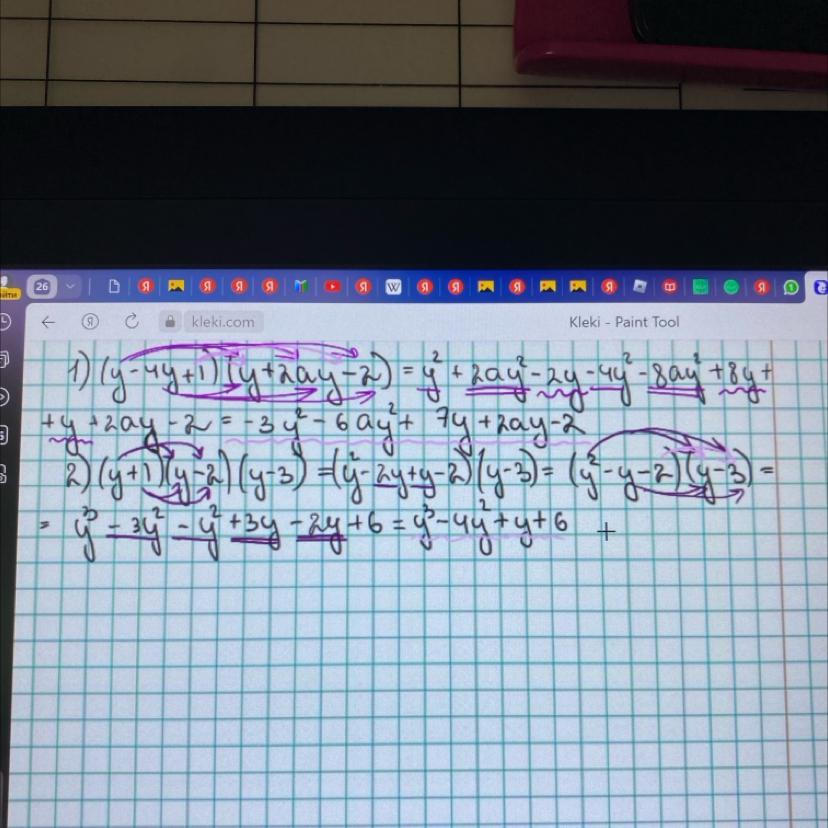 26
← Я kleki.com Kleki - Paint Tool
1) (y-4y+1)(y+2ay-2) = y² + 2ay² - 2y - 4y² - 8ay² + 8y +
+y +2ay - 2 = -3y² - 6ay² + 7y + 2ay - 2
2) (y+1)(y-2)(y-3) = (y² - 2y + y - 2)(y-3) = (y² - y - 2)(y-3) =
= y³ - 3y² - y² + 3y - 2y + 6 = y³ - 4y² + y + 6